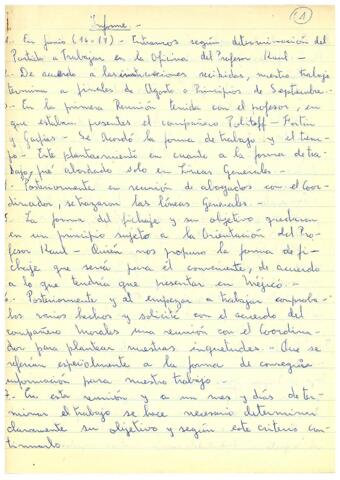 Informe -
(1)
1. En junio (16-17) - Entramos según determinación del
Partido a Trabajar en la Oficina del Profesor Raul -
2. De acuerdo a las instrucciones recibidas, nuestro trabajo
termina a finales de Agosto o Principios de Septiembre.
3 - En la primera Reunión tenida con el profesor, en
que estaban presentes el compañero Politoff - Martin
y Garfias - Se Acordó la forma de trabajo y el tiem-
po - Este planteamiento en cuanto a la forma de tra-
bajo, fué abordado solo en Líneas Generales -
4. Posteriormente en reunión de abogados con el Coor-
dinador, se trazaron las líneas Generales -
5. La forma del fichaje y su objetivo quedaron
en un principio sujeto a la Orientación del Pro-
fesor Raul - Quién nos propuso la forma de fi-
chaje que sería para él conveniente, de acuerdo
a lo que tendría que presentar en Méjico. -
6. Posteriormente y al empezar a trabajar comproba-
los varios hechos y solicité con el acuerdo del
compañero Morales una reunión con el Coordina-
dor para plantear nuestras inquietudes. - Que se
referían especialmente a la forma de conseguir
información para nuestro trabajo. -
7. En esta reunión y a un mes y días de ter-
minar el trabajo se hace necesario determinar
claramente su objetivo y según este criterio con-
tinuarlo.